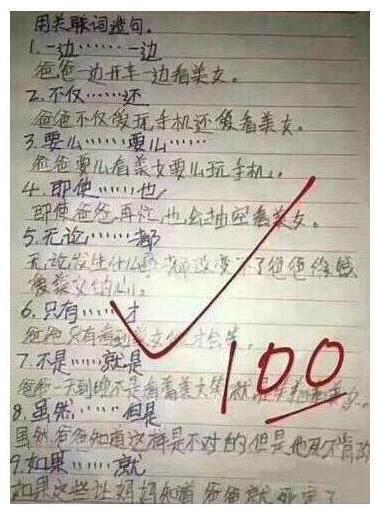 用关联词造句。
1.一边……一边
爸爸一边开车一边看美女。
2.不仅……还
爸爸不仅爱玩手机还爱看美女。
3.要么……要么……
爸爸要么看美女要么玩手机。
4.即使……也
即使爸爸再忙也会抽空看美女。
5.无论……都
无论发生什么都改变不了爸爸
爱美女的心。
6.只有……才
爸爸只有看到美女才会笑。
7.不是……就是
爸爸一天到晚不是看美女就是
8.虽然……但是
虽然爸爸知道这样是不对的但是他死不肯改
9.如果……就
如果这些让妈妈知道爸爸就死定了
100